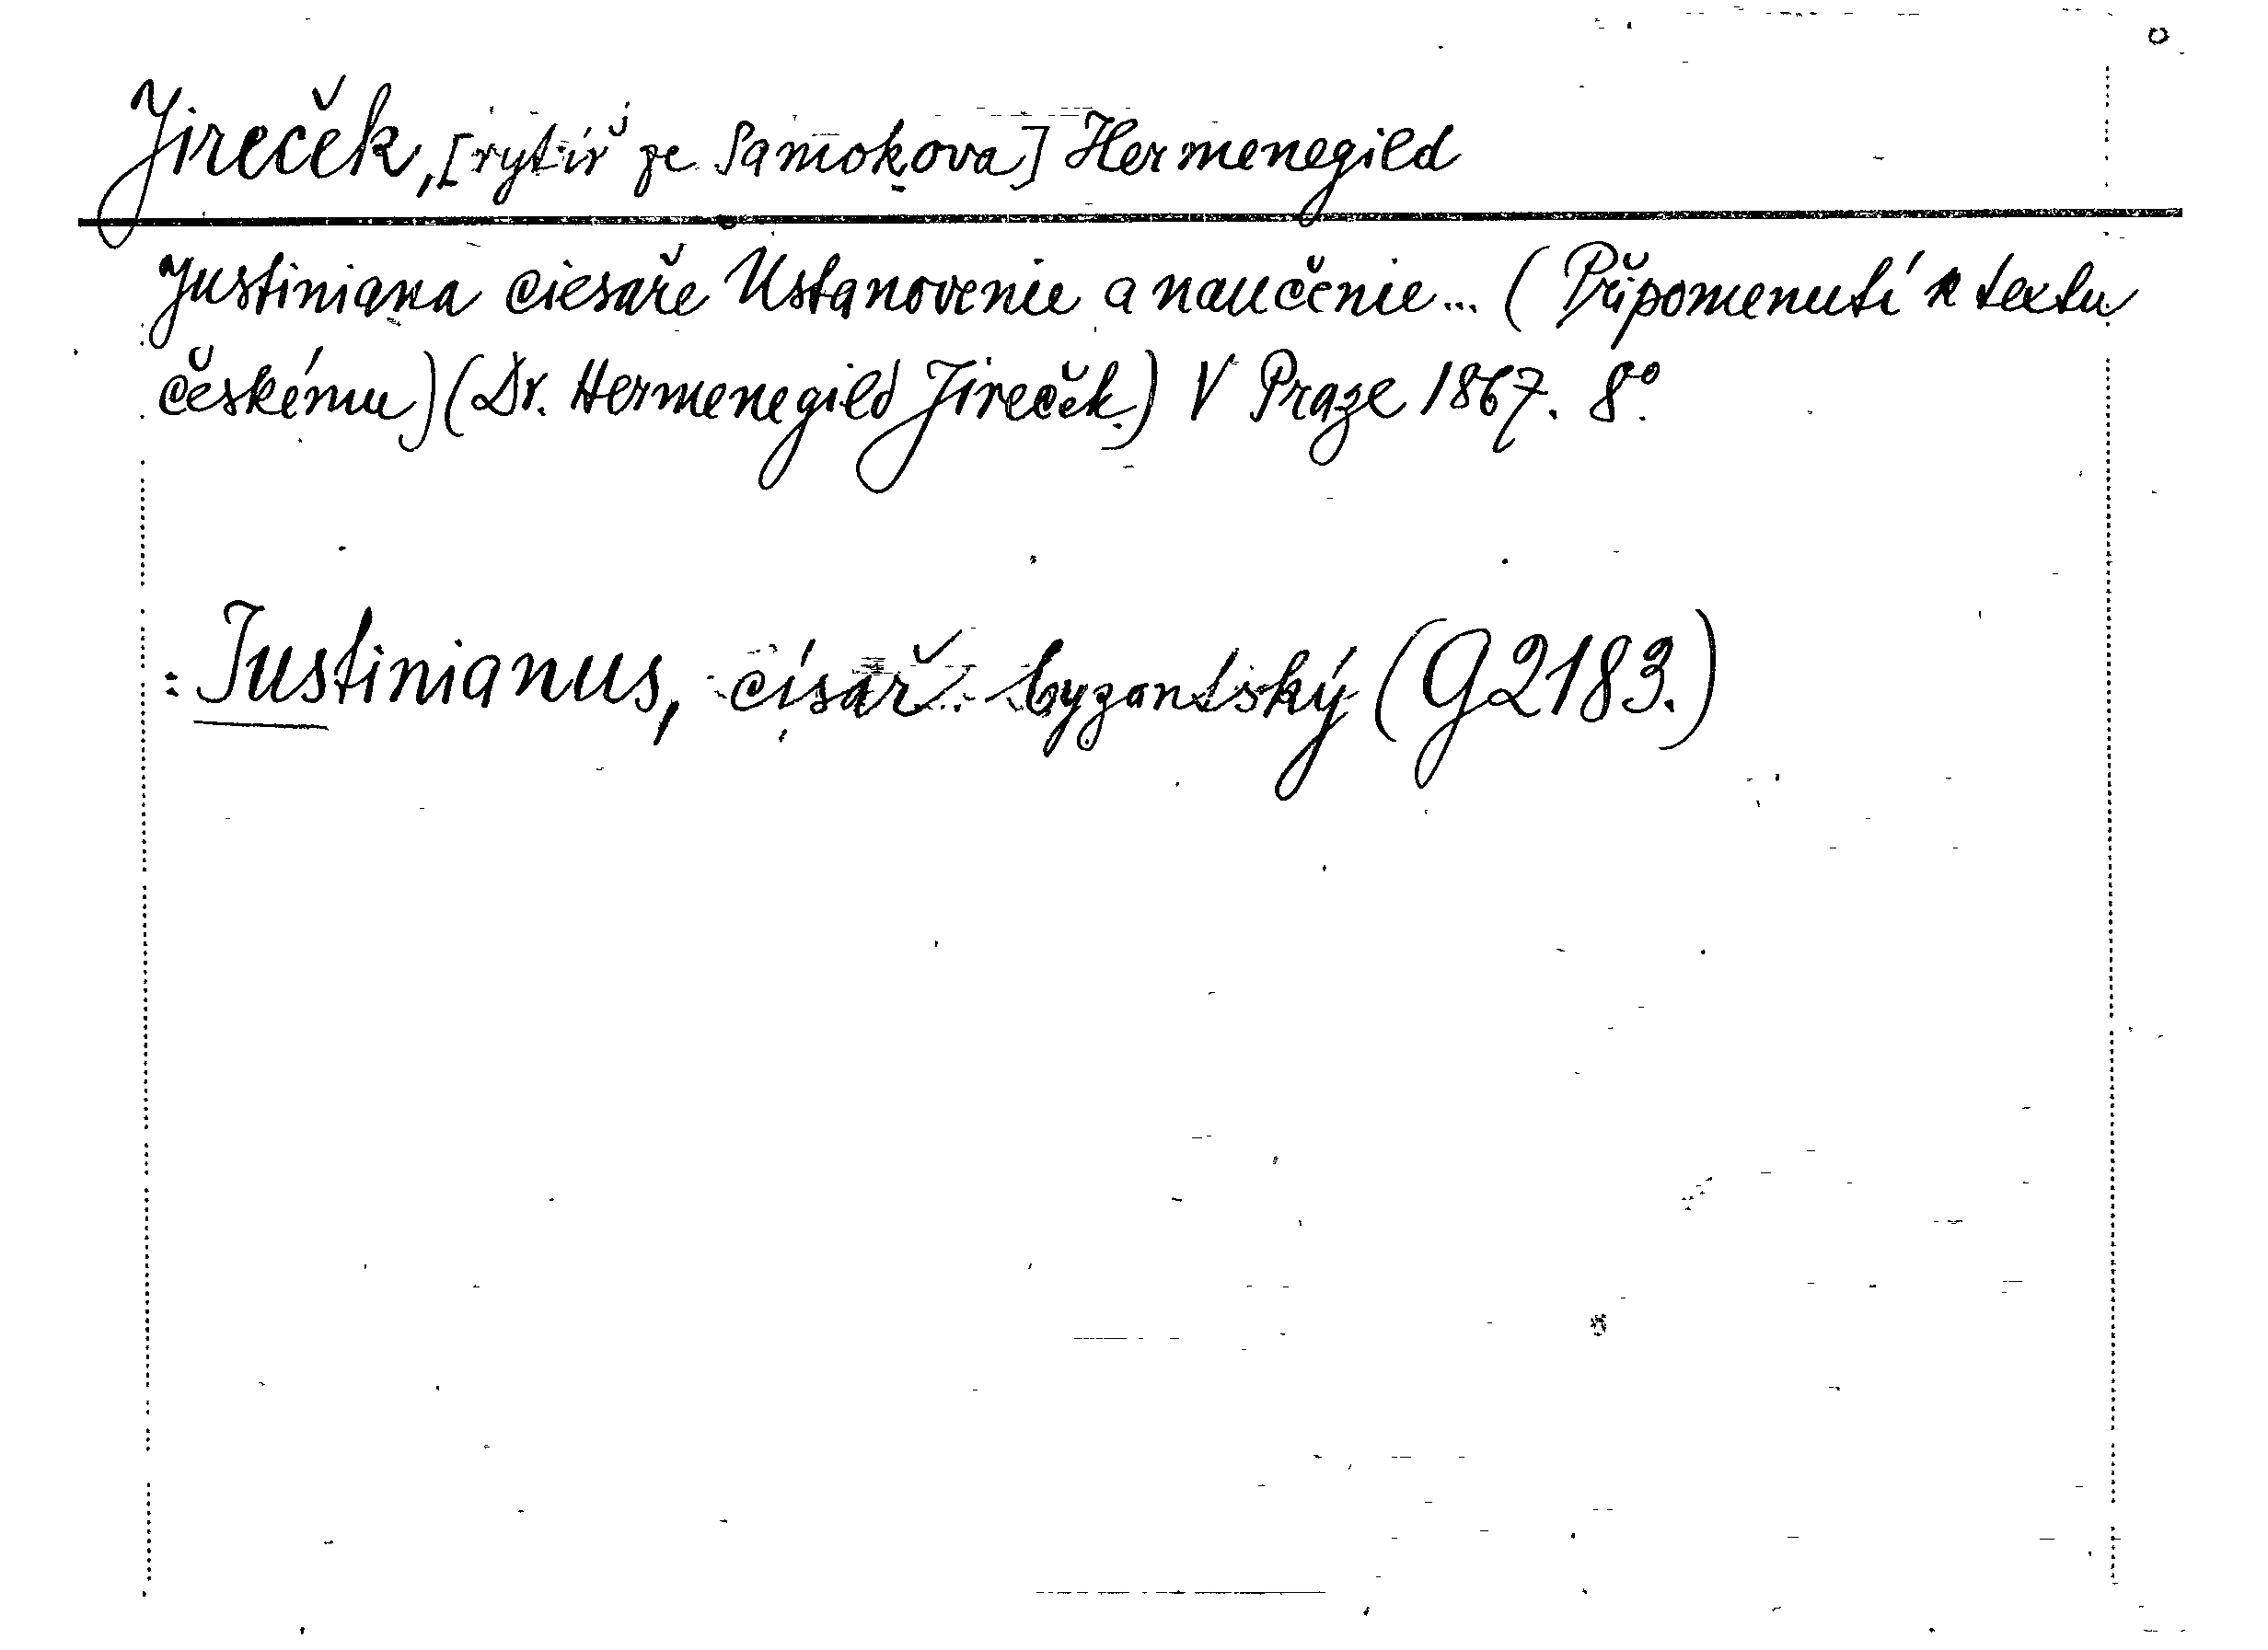 Jireček, [rytíř ze Samokova] Hermenegild
Justiniana ciesaře Ustanovenie a naučenie... (Připomenutí k textu
českému) (Dr. Hermenegild Jireček.) V Praze 1867. 8°.
: Justinianus, císař byzantský (G2183.)